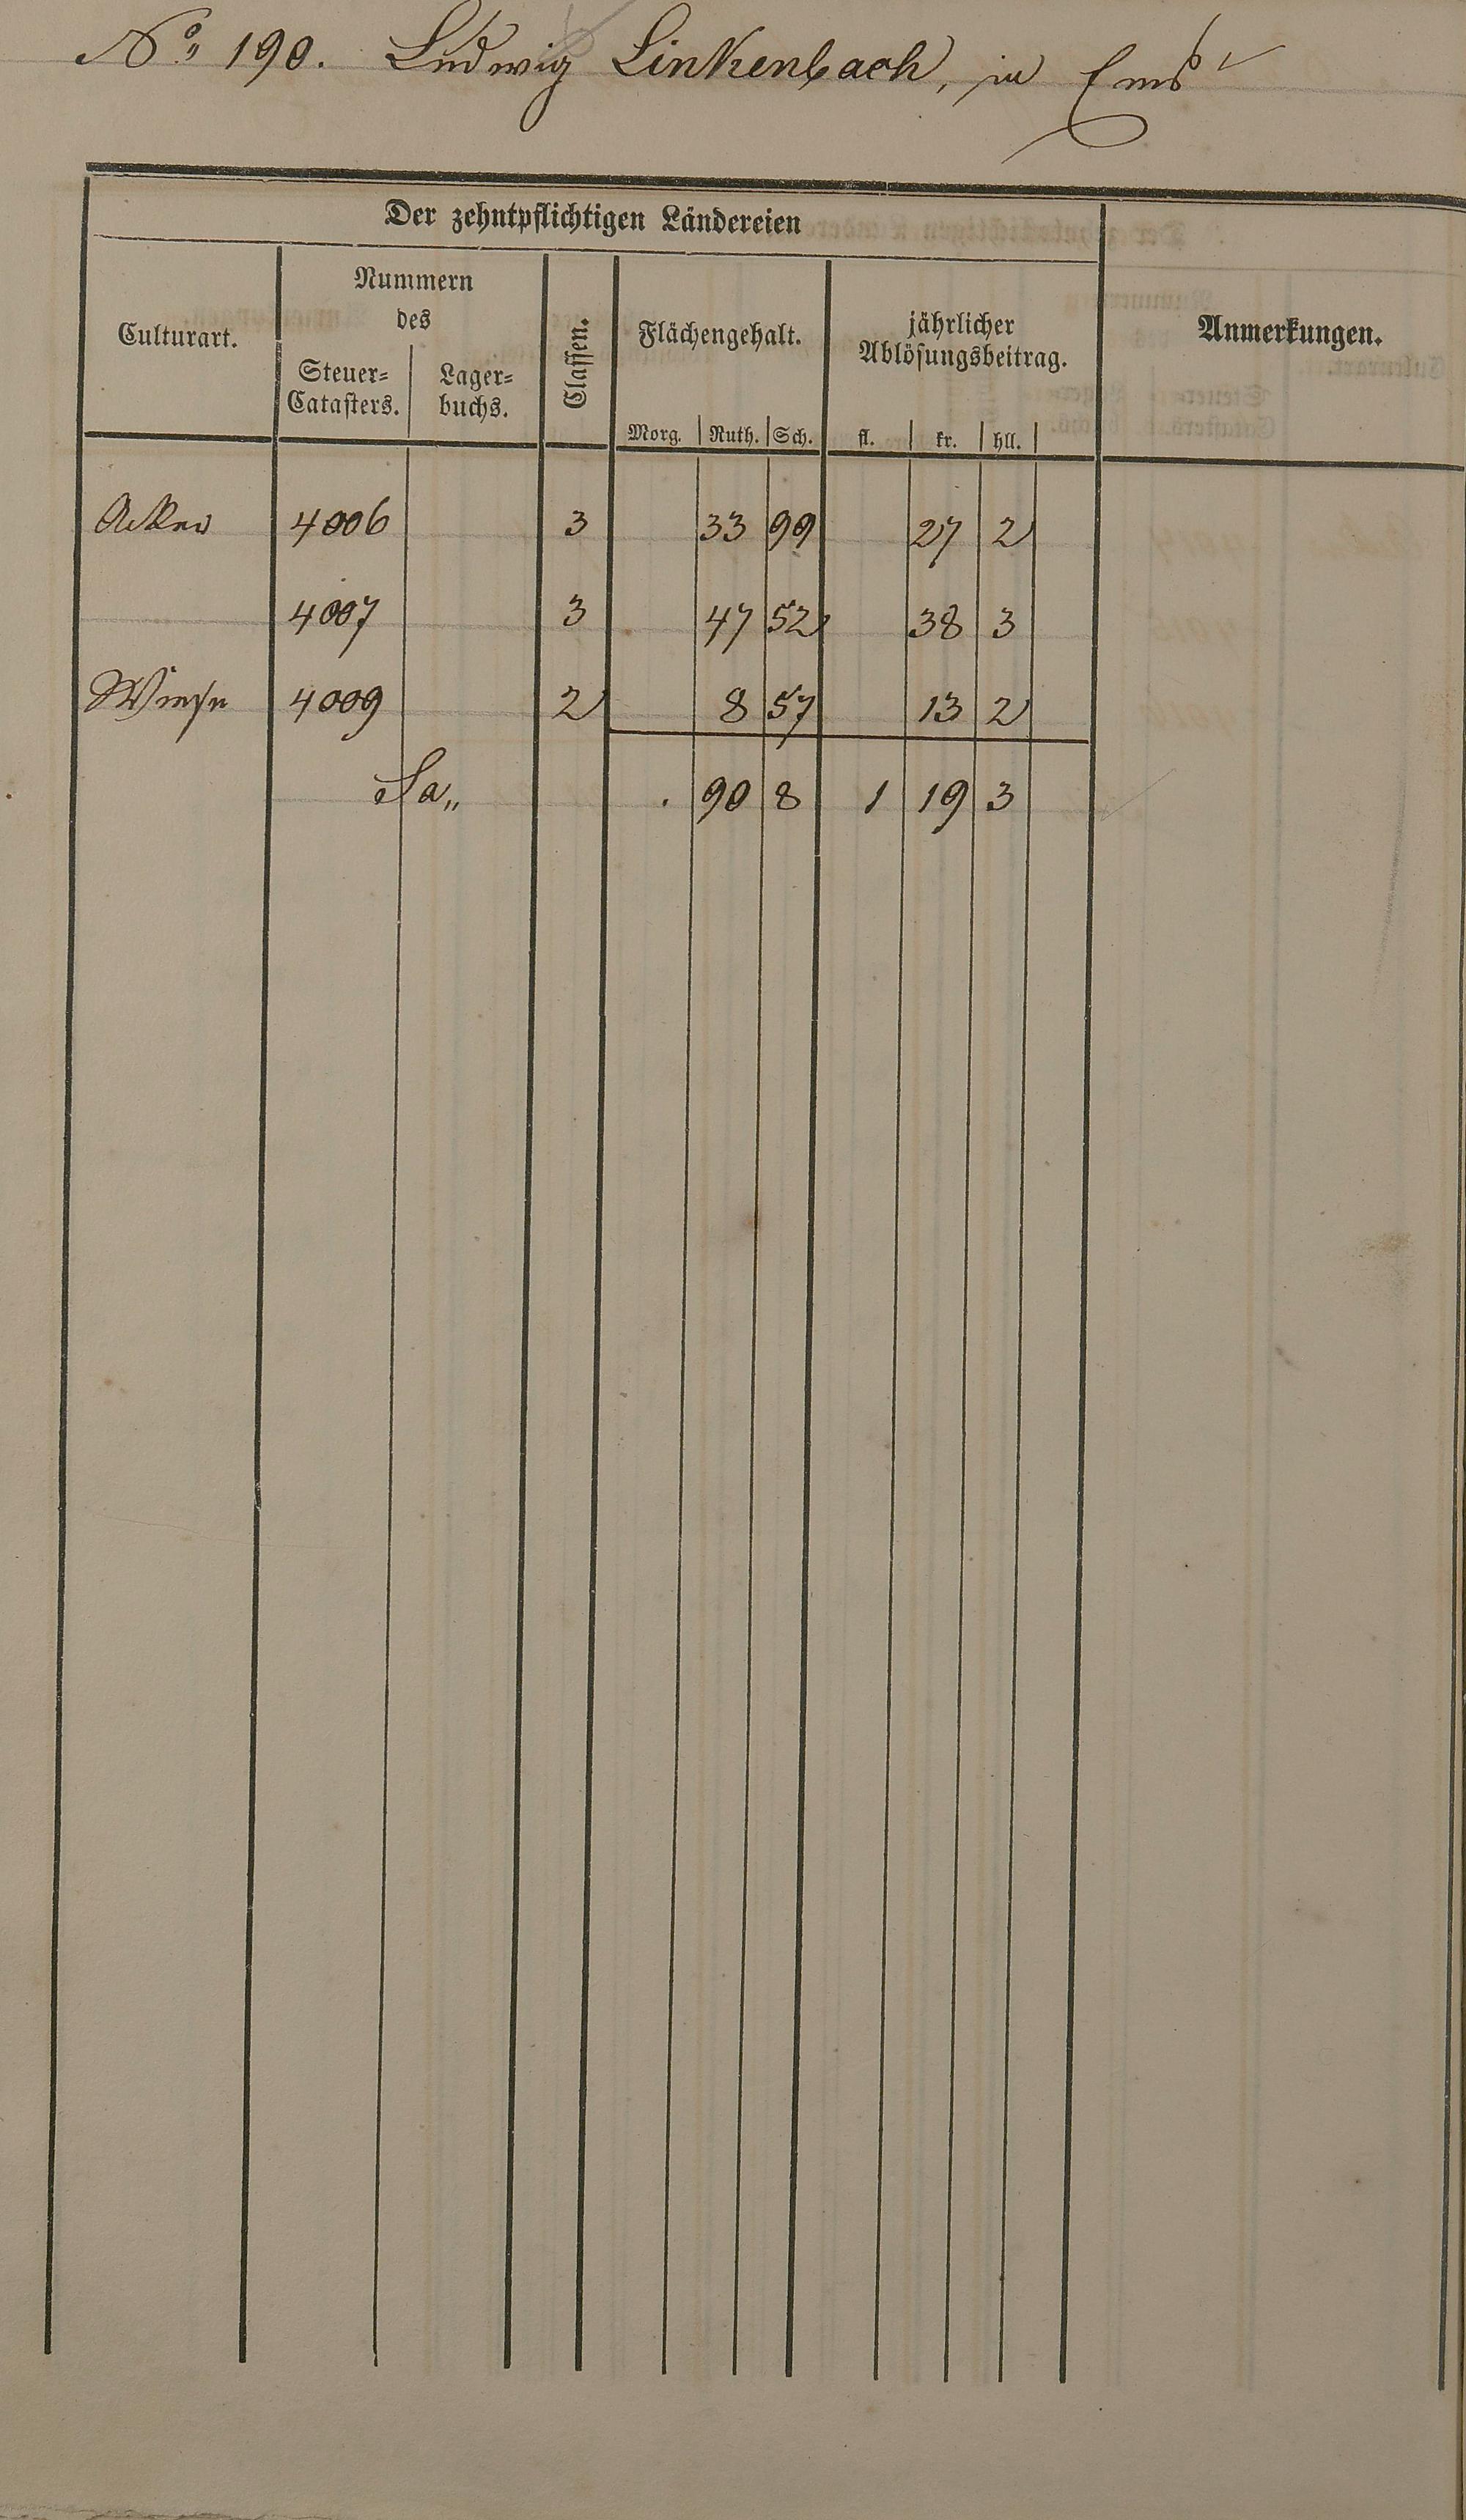 No. 190. Ludwig Linkenbach, in Ems
Der zehntpflichtigen Ländereien
Culturart.
Nummern
des
Steuer-
Catasters.
Lager-
buchs.
Classen.
Flächengehalt.
Morg. Ruth. Sch.
jährlicher
Ablösungsbeitrag.
fl. kr. hll.
Anmerkungen.
Acker 4006 3 33 99 27 2
4007 3 47 52 38 3
Wiese 4009 2 8 57 13 2
Sa,, . 90 8 1 19 3